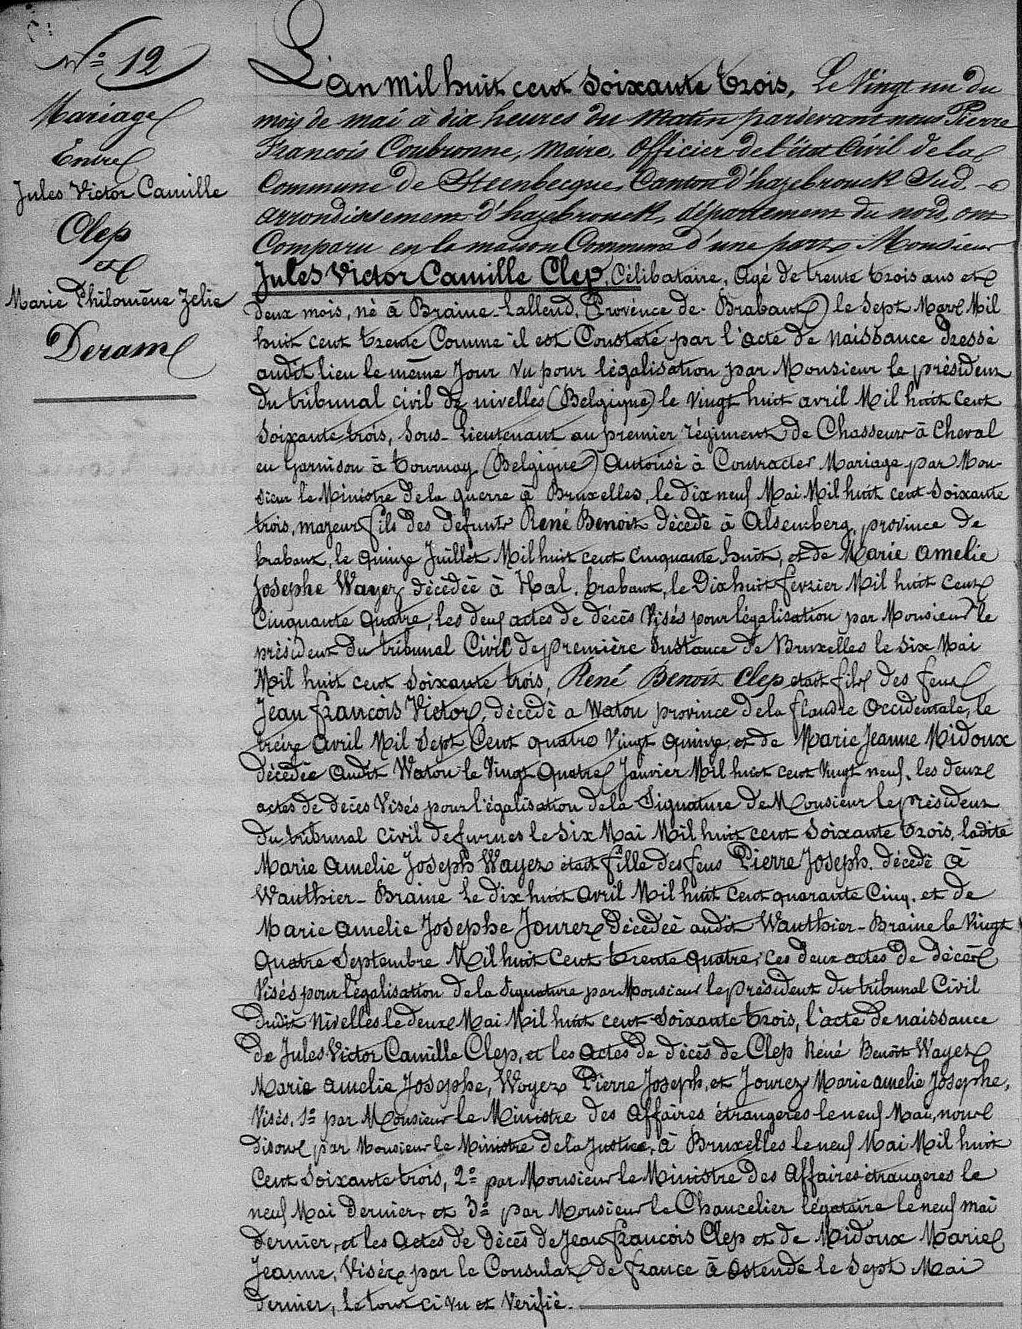 N° 12
Mariage
Entre
Jules Victor Camille
Clep
et
Marie Philomène Zelie
Deram
L'an mil huit cent soixante trois, Le vingt un du
mois de mai à dix heures du matin pardevant nous Pierre
François Coubronne, maire, officier de l'état civil de la
Commune de Steenbecque, Canton d'hazebrouck Sud,
arrondissement d'hazebrouck, département du nord, ont
Comparu en la maison Commune d'une part, Monsieur
Jules Victor Camille Clep, Célibataire, agé de trente trois ans et
deux mois, né à Braine-Lalleud, (Province de Brabant) le sept Mars Mil
huit cent trente Comme il est Constaté par l'acte de naissance dressé
audit lieu le même Jour vu pour légalisation par Monsieur le président
du tribunal civil de nivelles (Belgique) le vingt huit avril Mil huit cent
soixante trois, sous-lieutenant au premier régiment de Chasseurs à Cheval
en garnison à tournay (Belgique) Autorisé à Contracter Mariage par Mon-
sieur le Ministre de la guerre à Bruxelles, le dix neuf Mai Mil huit cent soixante
trois, majeur fils des défunts René Benoit décédé à Alsemberg, province de
brabant, le quinze Juillet Mil huit cent cinquante huit, et de Marie amelie
Josephe Wayez décédée à Hal, brabant, le Dix huit février Mil huit cent
Cinquante quatre, les deux actes de décès Visés pour légalisation par Monsieur le
président du tribunal Civil de première Instance de Bruxelles le six Mai
Mil huit cent soixante trois, René Benoit Clep était fils des feus
Jean françois Victor, décédé a Watou province de la flandre occidentale, le
treize avril Mil sept Cent quatre Vingt quinze, et de Marie Jeanne Midoux
décédée audit Watou le Vingt quatre Janvier Mil huit cent vingt neuf, les deux
actes de décès Visés pour légalisation de la Signature de Monsieur le président
du tribunal civil de furnes le six Mai Mil huit cent soixante trois, ladite
Marie amelie Joseph Wayez était fille des feus Pierre Joseph, décédé à
Wauthier-Braine le dix huit avril Mil huit cent quarante Cinq, et de
Marie amelie Josephe Jourez Décédée audit Wauthier-Braine le Vingt
quatre Septembre Mil huit Cent trente quatre, ces deux actes de décès
Visés pour légalisation de la signature par Monsieur le président du tribunal Civil
dudit Nivelles le deux Mai Mil huit cent soixante trois, l'acte de naissance
de Jules Victor Camille Clep, et les actes de décès de Clep Réné Benoit Wayez
Marie amelie Josephe, Wayez Pierre Joseph, et Jourez Marie amelie Josephe,
Visés, 1° par Monsieur le Ministre des Affaires étrangeres le neuf Mai, nous
disons par Monsieur le Ministre de la Justice, à Bruxelles le neuf Mai Mil huit
Cent soixante trois, 2° par Monsieur le Ministre des Affaires étrangeres le
neuf Mai dernier, et 3° par Monsieur le Chancelier légataire le neuf mai
dernier, et les actes de décès de Jean françois Clep et de Midoux Marie
Jeanne, Visés par le Consulat de france à Ostende le sept Mai
dernier, le tout ci vu et Verifié.